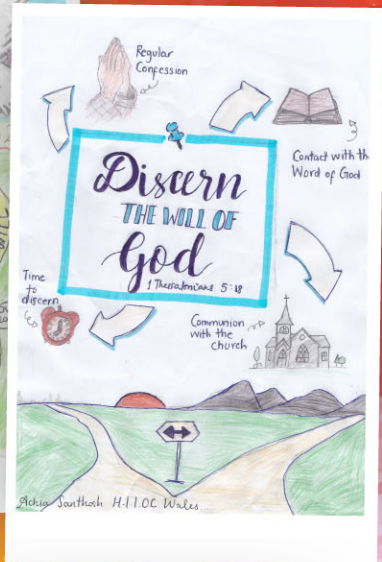 Regular
Confession
Contact with the
Word of God
Discern
THE WILL OF
God
1 Thessalonians 5:18
Time
to
discern
Communion
with the
church
Achia Santhosh H.I.I.O.C Wales